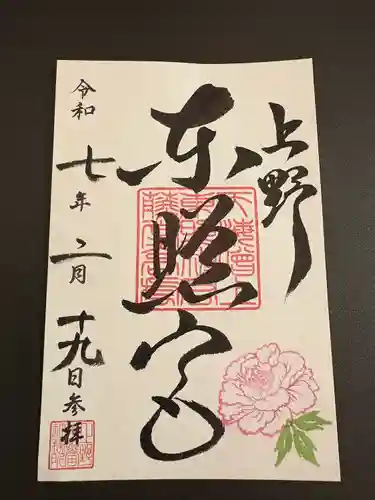 上野
東照宮
令和七年二月十九日参拝